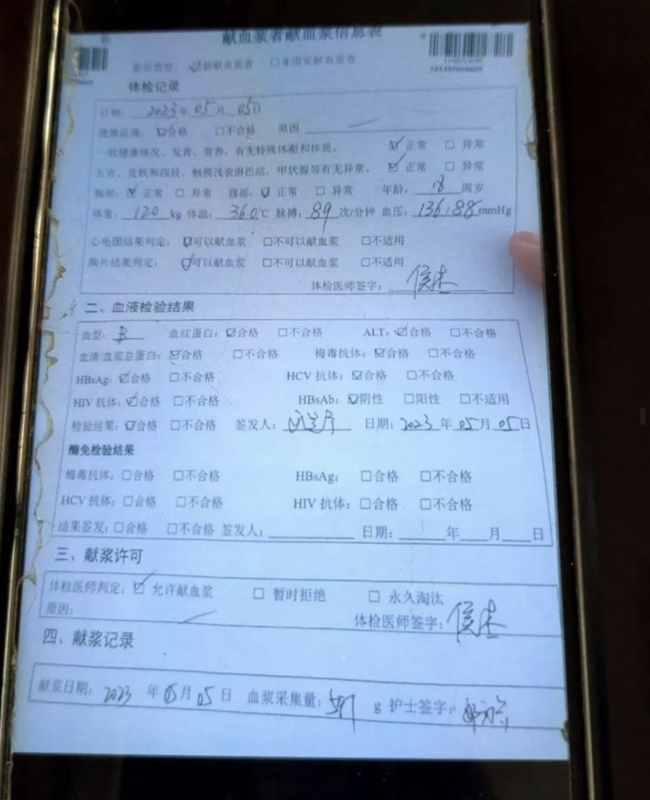 献血浆者献血浆信息表
体检记录
日期: 2023年 05月 05日
健康征询: ☑合格 □不合格 原因
一般健康情况、发育、营养,有无特殊体貌和体质。 ☑ 正常 □ 异常
五官、皮肤和四肢,触摸浅表淋巴结、甲状腺等有无异常。 ☑ 正常 □ 异常
胸部: ☑ 正常 □ 异常 腹部: ☑ 正常 □ 异常 年龄: 18 周岁
体重: 120 kg 体温: 36.0℃ 脉搏: 89 次/分钟 血压: 136/88mmHg
心电图结果判定: ☑可以献血浆 □不可以献血浆 □不适用
胸片结果判定: ☑可以献血浆 □不可以献血浆 □不适用
体检医师签字:
二、血液检验结果
血型: B 血红蛋白: ☑合格 □不合格 ALT: ☑合格 □不合格
血清/血浆总蛋白: ☑合格 □不合格 梅毒抗体: ☑合格 □不合格
HBsAg: ☑合格 □不合格 HCV 抗体: ☑合格 □不合格
HIV 抗体: ☑合格 □不合格 HBsAb: ☑阴性 □阳性 □不适用
检验结果: ☑合格 □不合格 签发人: 日期: 2023 年 05月 05日
酶免检验结果
梅毒抗体: □合格 □不合格 HBsAg: □合格 □不合格
HCV 抗体: □合格 □不合格 HIV 抗体: □合格 □不合格
结果签发: □合格 □不合格 签发人: 日期: 年 月 日
三、献浆许可
体检医师判定: ☑ 允许献血浆 □ 暂时拒绝 □ 永久淘汰
原因: 体检医师签字:
四、献浆记录
献浆日期: 2023 年 05月 05 日 血浆采集量: g 护士签字: